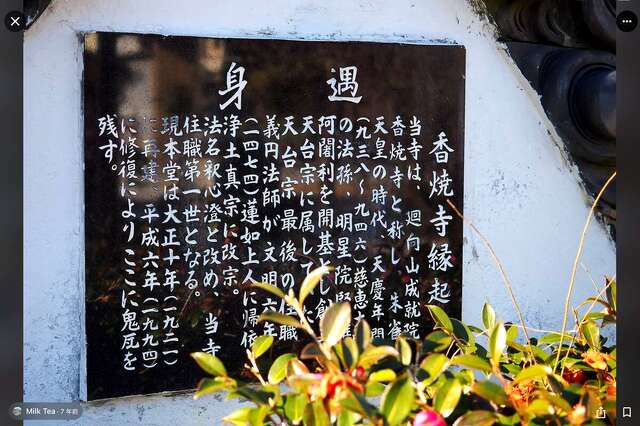 遇身
香焼寺縁起
当寺は、廻向山成就院
香焼寺と称し、朱雀
天皇の時代、天慶年間
(九三八〜九四六)慈恵大
の法孫、明星院
阿闍利を開基とし創
天台宗に属して
天台宗最後の住職
義円法師が文明六年
(一四七四)蓮如上人に帰依
浄土真宗に改宗。
法名釈心澄と改め、当寺
住職第一世となる。
現本堂は大正十年(一九二一)
に再建、平成六年(一九九四)
に修復によりここに鬼瓦を
残す。
Milk Tea · 7 年前